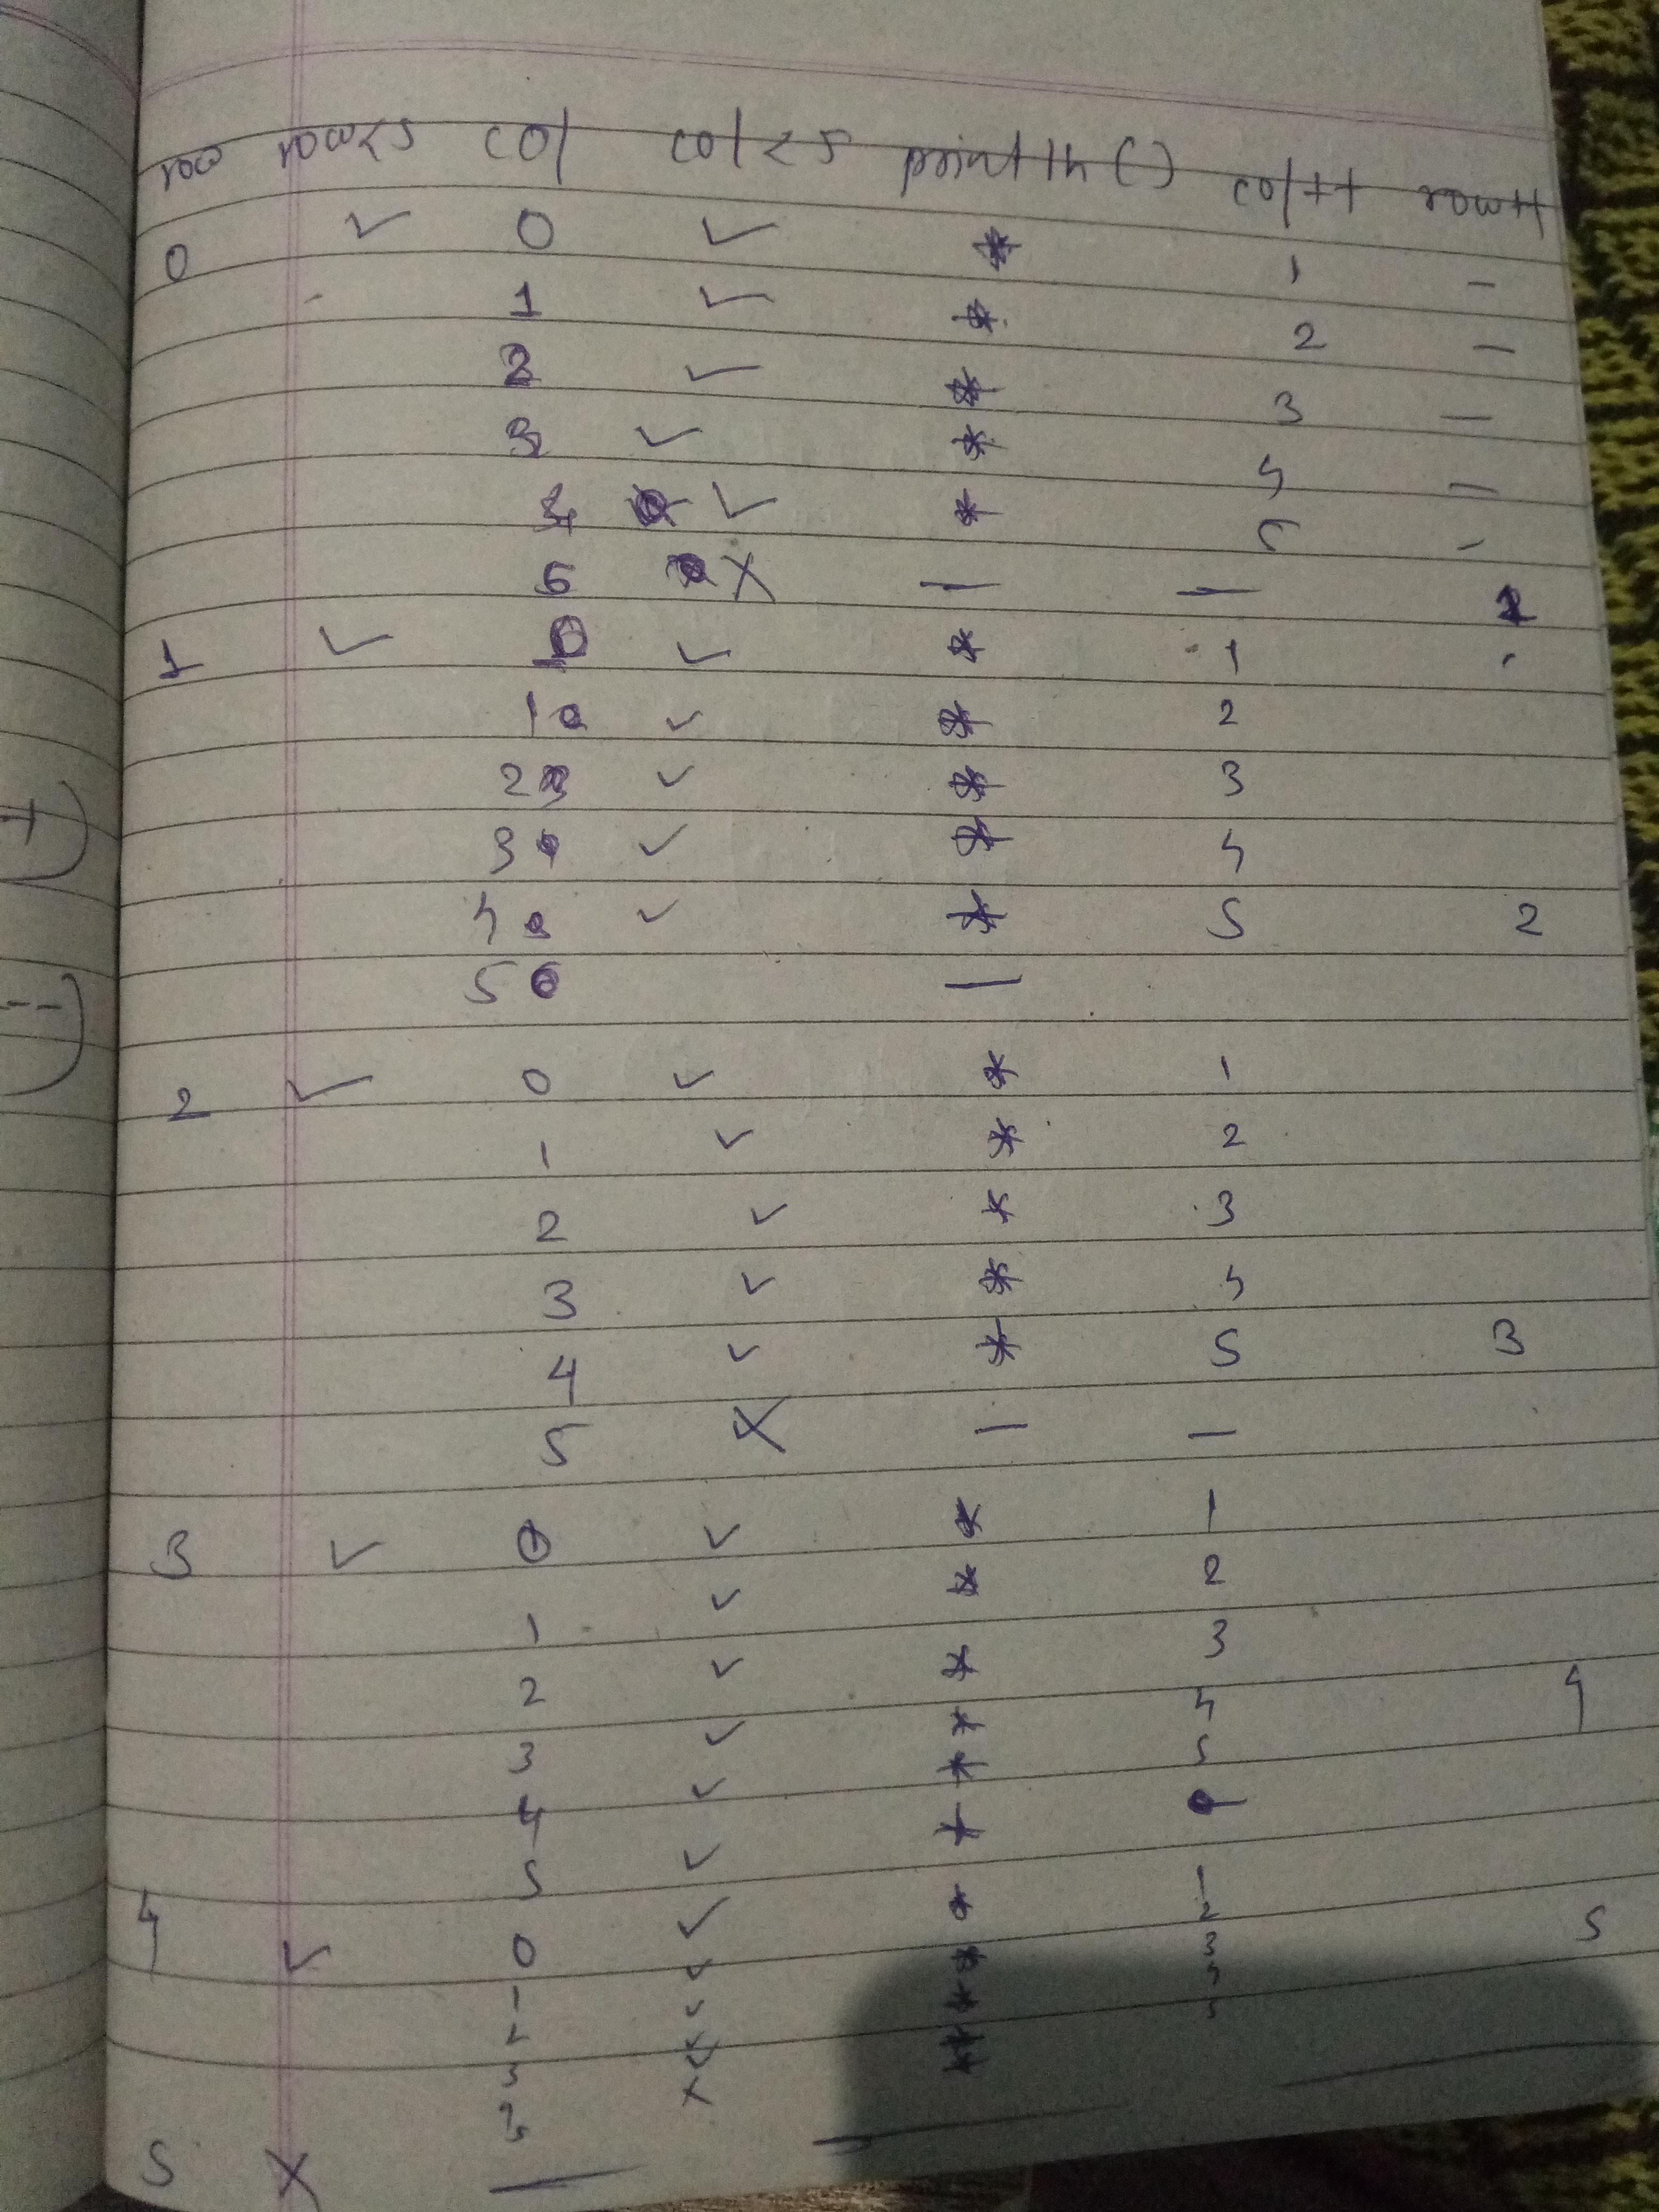 row row<5 col col<5 println() col++ row++
0 ✓ 0 ✓ * 1 –
1 ✓ * 2 –
2 ✓ * 3 –
3 ✓ * 4 –
4 ✓ * 5 –
✗ — —
1 ✓ 0 ✓ * 1
1 ✓ * 2
2 ✓ * 3
3 ✓ * 4
4 ✓ * 5 2
5 —
2 ✓ 0 ✓ * 1
1 ✓ * 2
2 ✓ * 3
3 ✓ * 4
4 ✓ * 5 3
5 ✗ — —
3 ✓ 0 ✓ * 1
1 ✓ * 2
2 ✓ * 3
3 ✓ * 4 4
4 ✓ * 5
5 ✓ * –
4 ✓ 0 ✓ * 1
1 ✓ * 2 5
2 ✓ * 3
3 ✓ * 4
✗ 5
5 ✗ — — —